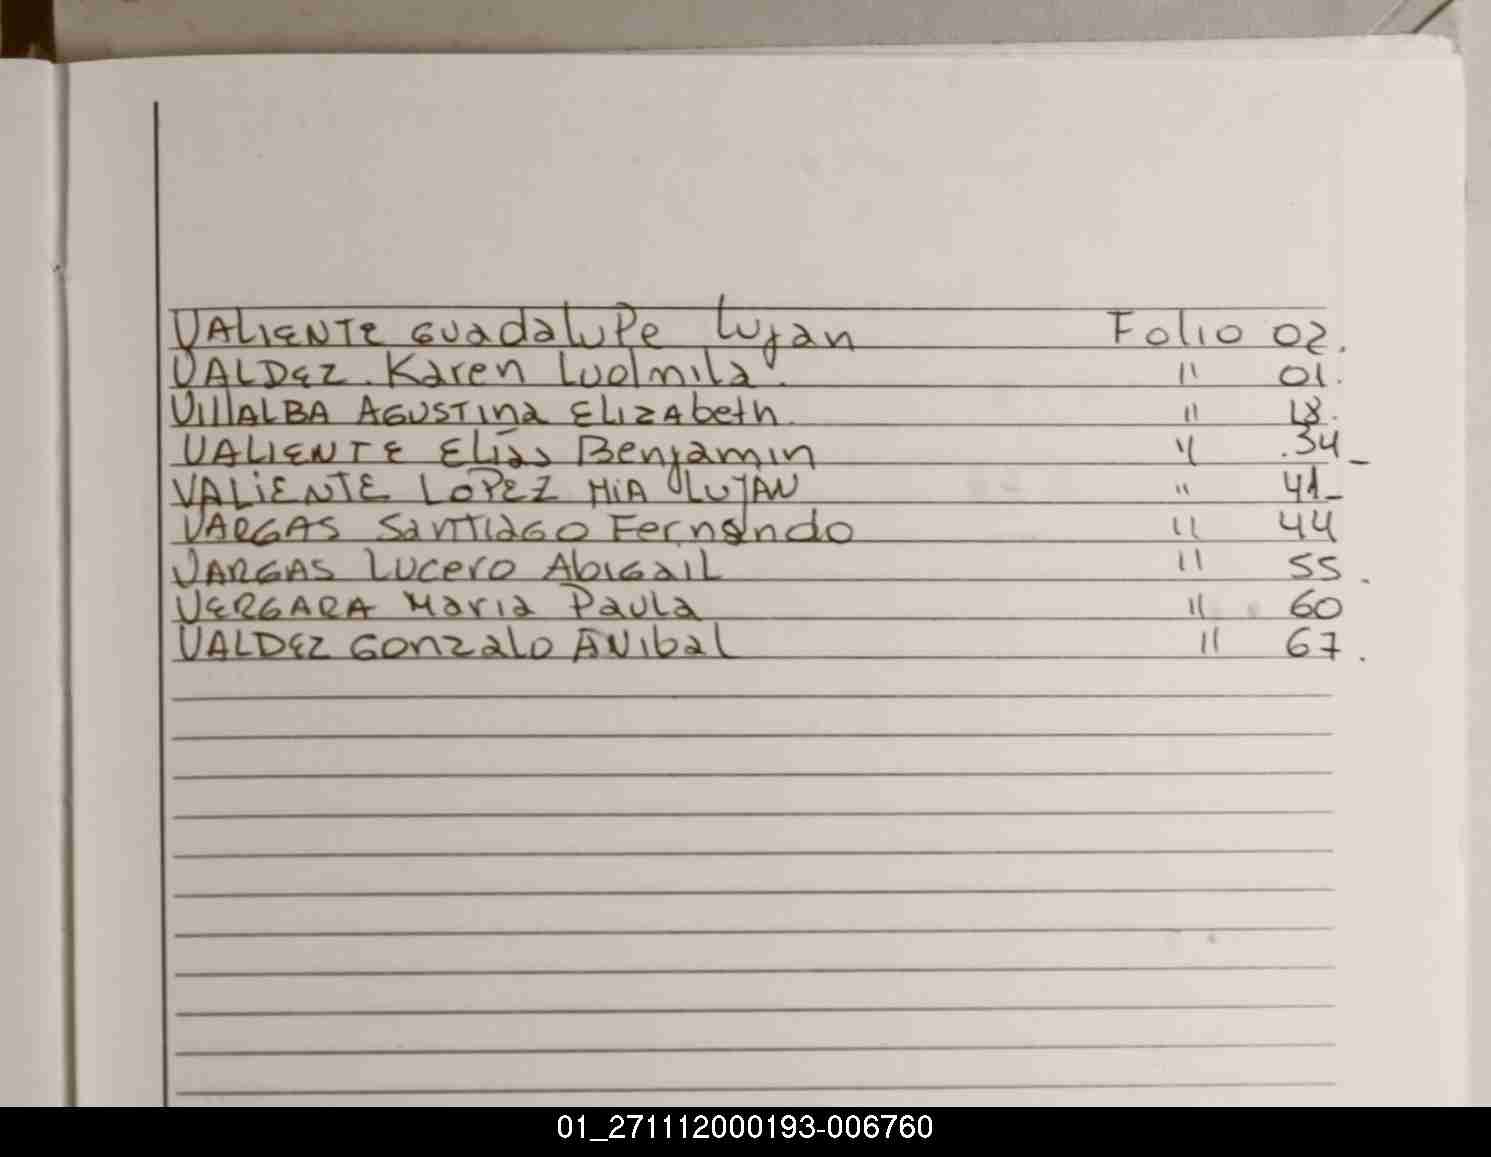 VALIENTE Guadalupe Lujan Folio 02.
VALDEZ. Karen Ludmila. " 01.
VillALBA AGUSTina ElizAbeth. " 18.
VALIENTE Elías Benjamin " .34_
VALiENTE LOPEZ MiA LUJAN " 41_
VARGAS Santiago Fernando " 44
VARGAS Lucero Abigail " 55.
VERGARA Maria Paula " 60
VALDEZ Gonzalo ANibal " 67.
01_271112000193-006760